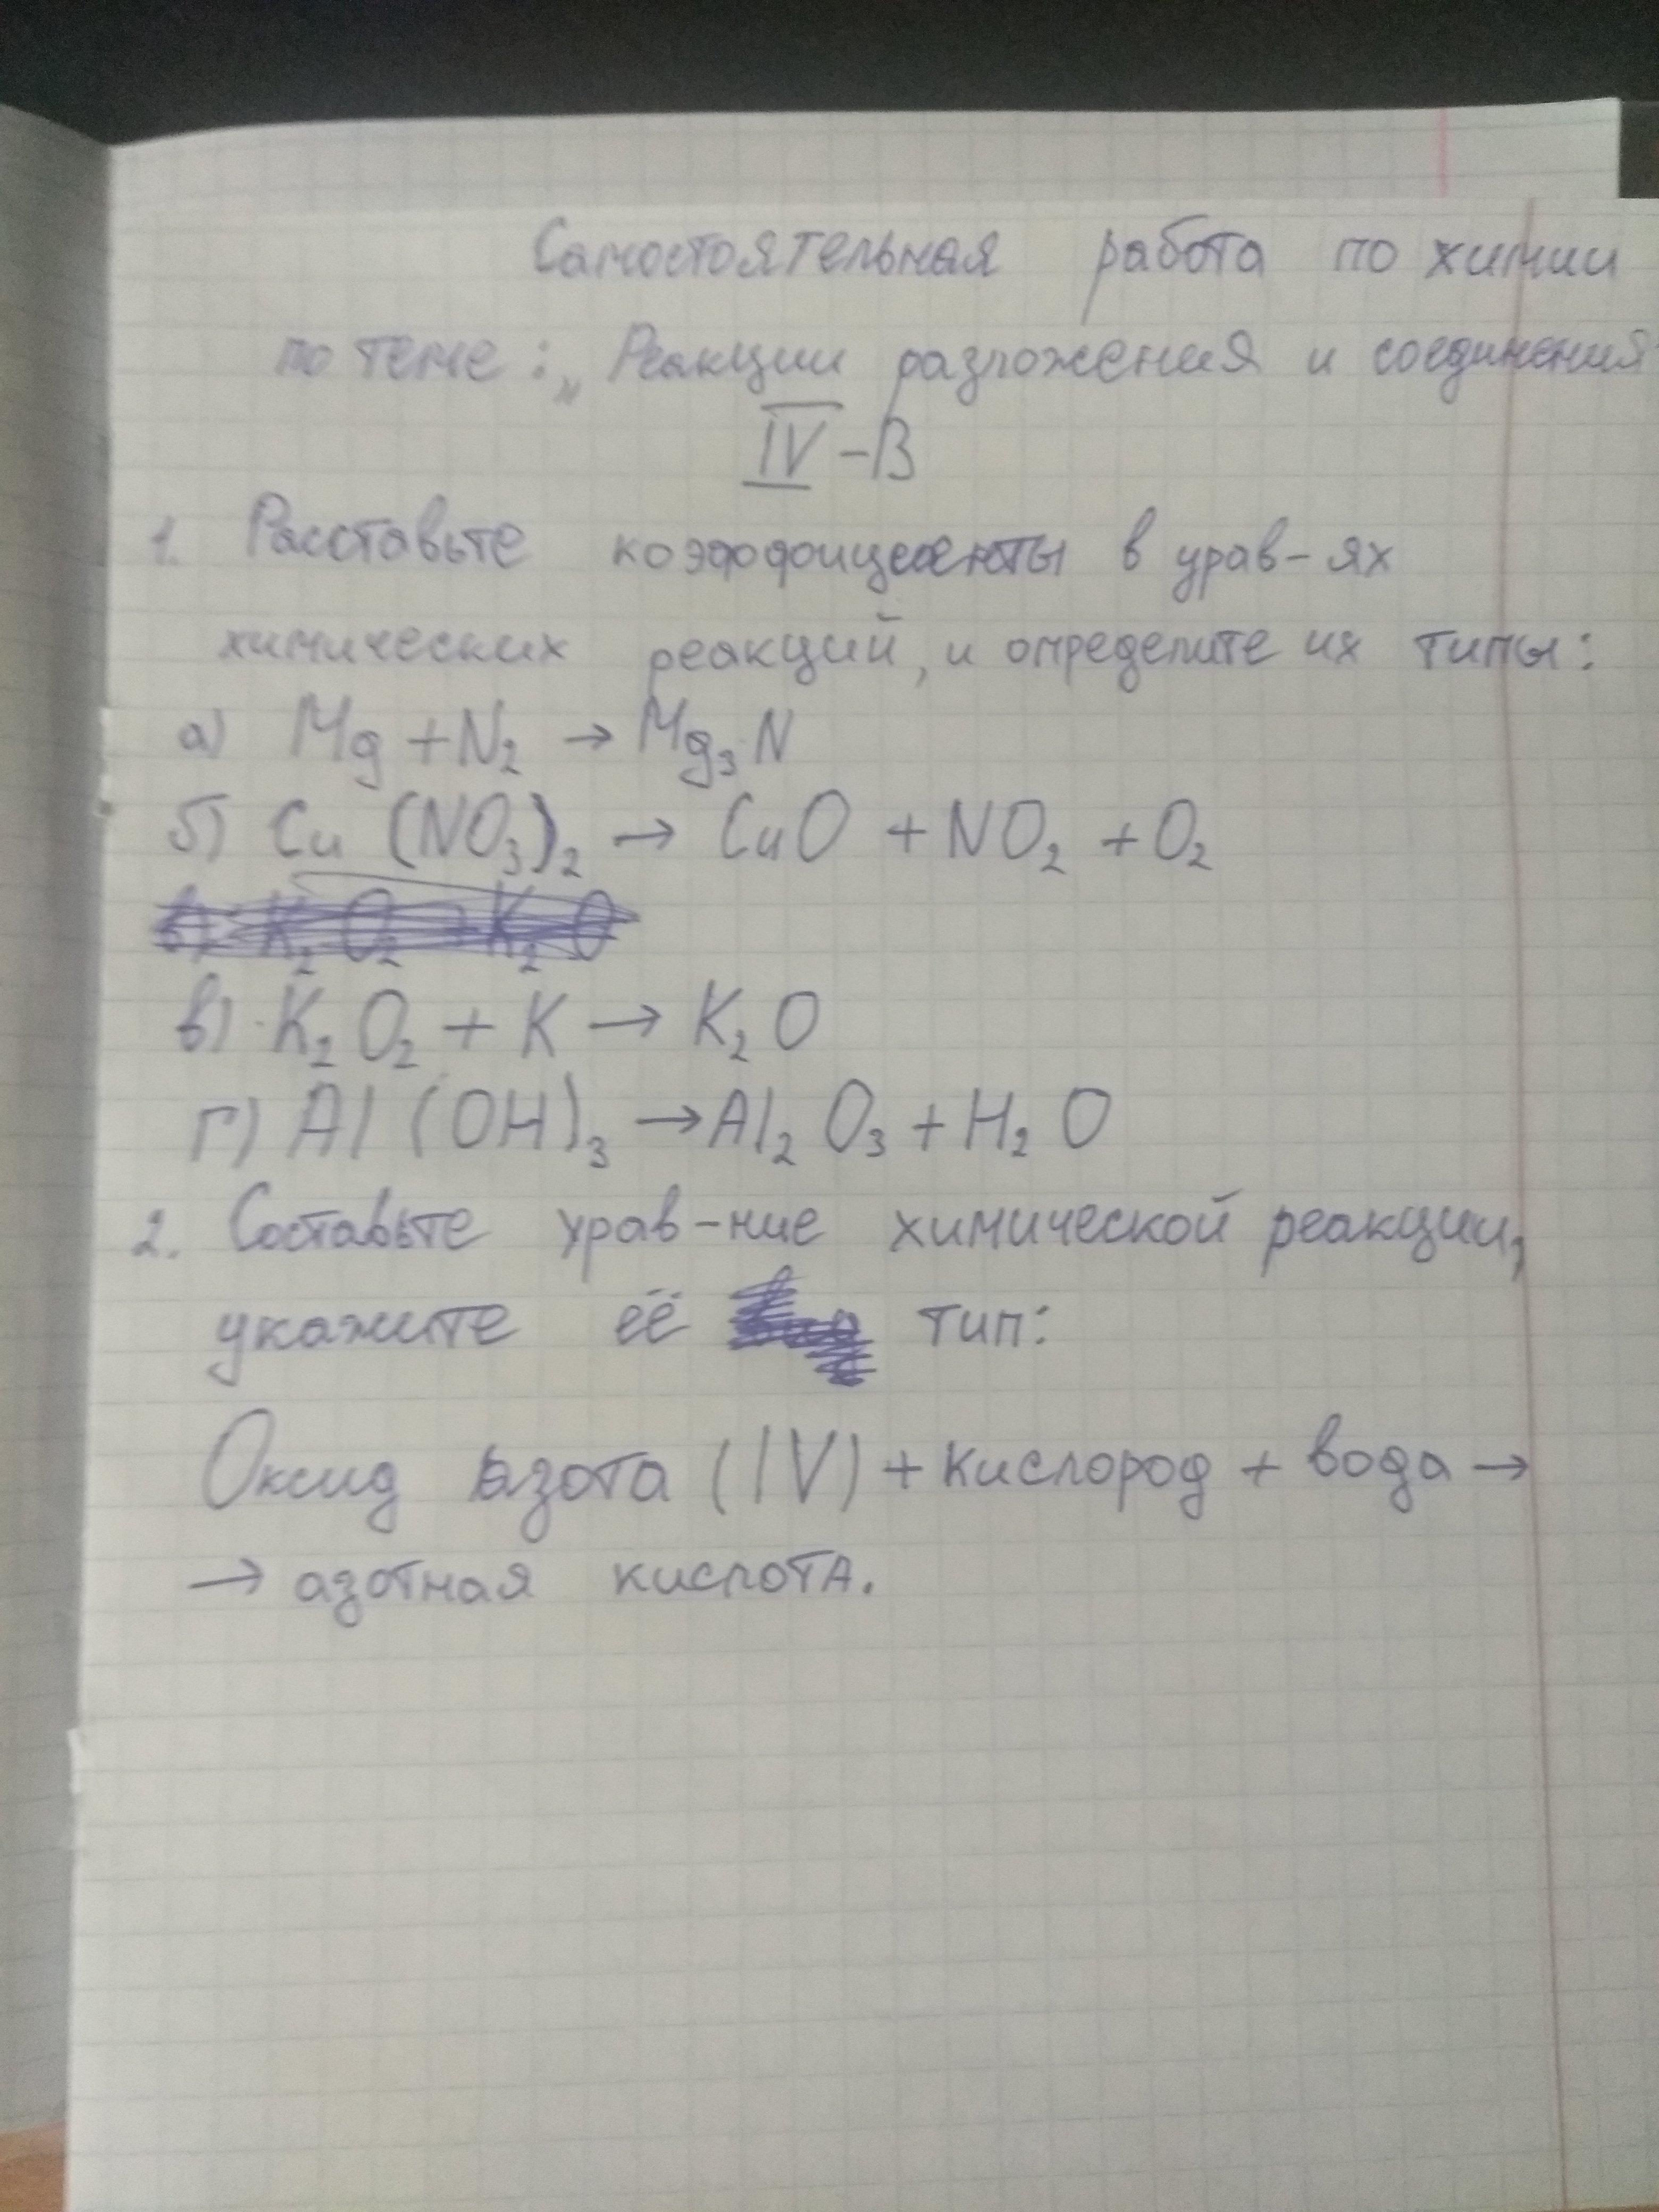 Самостоятельная работа по химии
по теме: „Реакции разложения и соединения
IV-В
1. Расставьте коэффициенты в урав-ях
химических реакций, и определите их типы:
а) Mg + N₂ → Mg₃N
б) Cu (NO₃)₂ → CuO + NO₂ + O₂
в) K₂O₂ + K → K₂O
г) Al (OH)₃ → Al₂O₃ + H₂O
2. Составьте урав-ние химической реакции,
укажите её тип:
Оксид азота (IV) + кислород + вода →
→ азотная кислота.